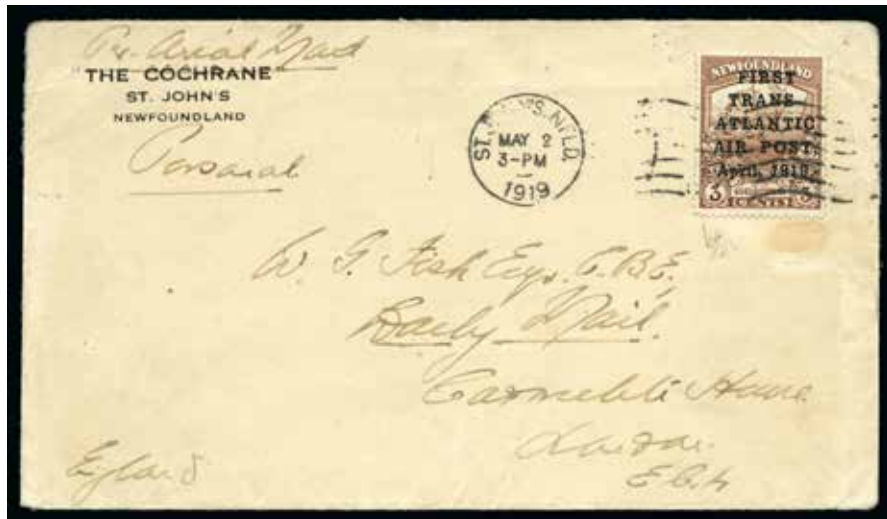 Per Arial Mail
THE COCHRANE
ST. JOHN'S
NEWFOUNDLAND
Personal
ST. JOHN'S. NFLD.
MAY 2
3-PM
1919
NEWFOUNDLAND
FIRST
TRANS-
ATLANTIC
AIR POST,
April, 1919.
3 CENTS 3
W. G. Fish Esq. C.B.E,
Daily Mail.
Carmelite House
London
E.C.4
England